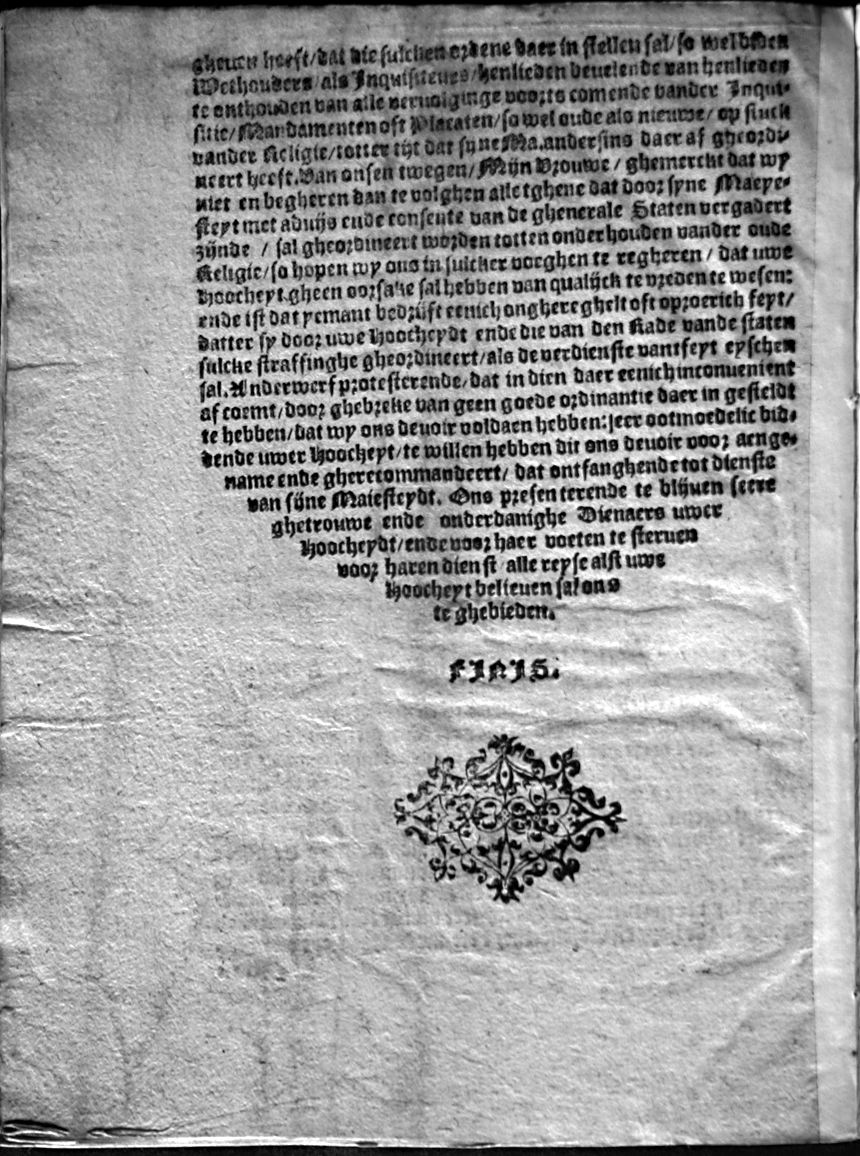 gheuen heeft/dat die sulcken ordene daer in stellen sal/so wel den
Wethouders/als Inquisiteurs/henlieden beuelende van henlieden
te onthouden van alle veruolginge voorts comende vander Inqui-
sitie/Mandamenten oft Placaten/so wel oude als nieuwe/op stuck
vander Religie/totter tijt dat syne Ma.andersins daer af gheordi-
neert heeft.Van onsen twegen/Mijn Vrouwe/ghemerckt dat wy
niet en begheren dan te volghen alle tghene dat door syne Maeye-
steyt met aduijs ende consente van de ghenerale Staten vergadert
zijnde / sal gheordineert worden totten onderhouden vander oude
Religie/so hopen wy ons in sulcker voeghen te regheren/ dat uwe
Hoocheyt.gheen oorsake sal hebben van qualijck te vreden te wesen:
ende ist dat yemant bedrijft eenich onghereghelt oft oproerich feyt/
datter sy door uwe Hoocheydt ende die van den Rade vande staten
sulcke straffinghe gheordineert/als de verdienste vantfeyt eyschen
sal.Anderwerf protesterende/dat in dien daer eenich inconuenient
af coemt/door ghebreke van geen goede ordinantie daer in gesteldt
te hebben/dat wy ons deuoir voldaen hebben:seer ootmoedelic bid-
dende uwer Hoocheyt/te willen hebben dit ons deuoir voor aenge-
name ende gherecommandeert/ dat ontfanghende tot dienste
van sijne Maiesteydt. Ons presenterende te blijuen seere
ghetrouwe ende onderdanighe Dienaers uwer
Hoocheydt/ende voor haer voeten te steruen
voor haren dienst/alle reyse alst uwe
Hoocheyt belieuen sal ons
te ghebieden.
FINIS.